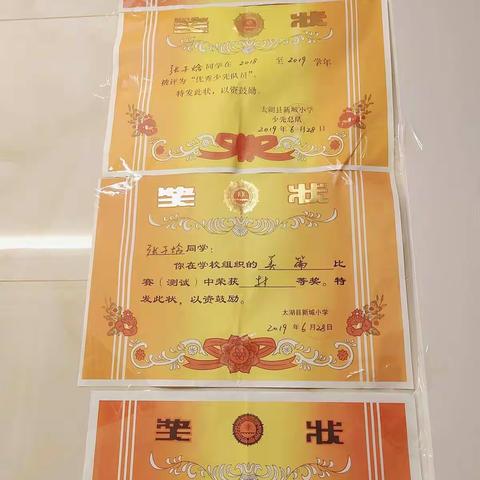 奖 状
张子焓同学在 2018 至 2019 学年
被评为“优秀少先队员”,
特发此状,以资鼓励。
太湖县新城小学
少先总队
2019 年 6 月 28 日
奖 状
张子焓 同学:
你在学校组织的 美篇 比
赛(测试)中荣获 等奖。特
发此状,以资鼓励。
太湖县新城小学
2019 年 6 月 28 日
奖 状